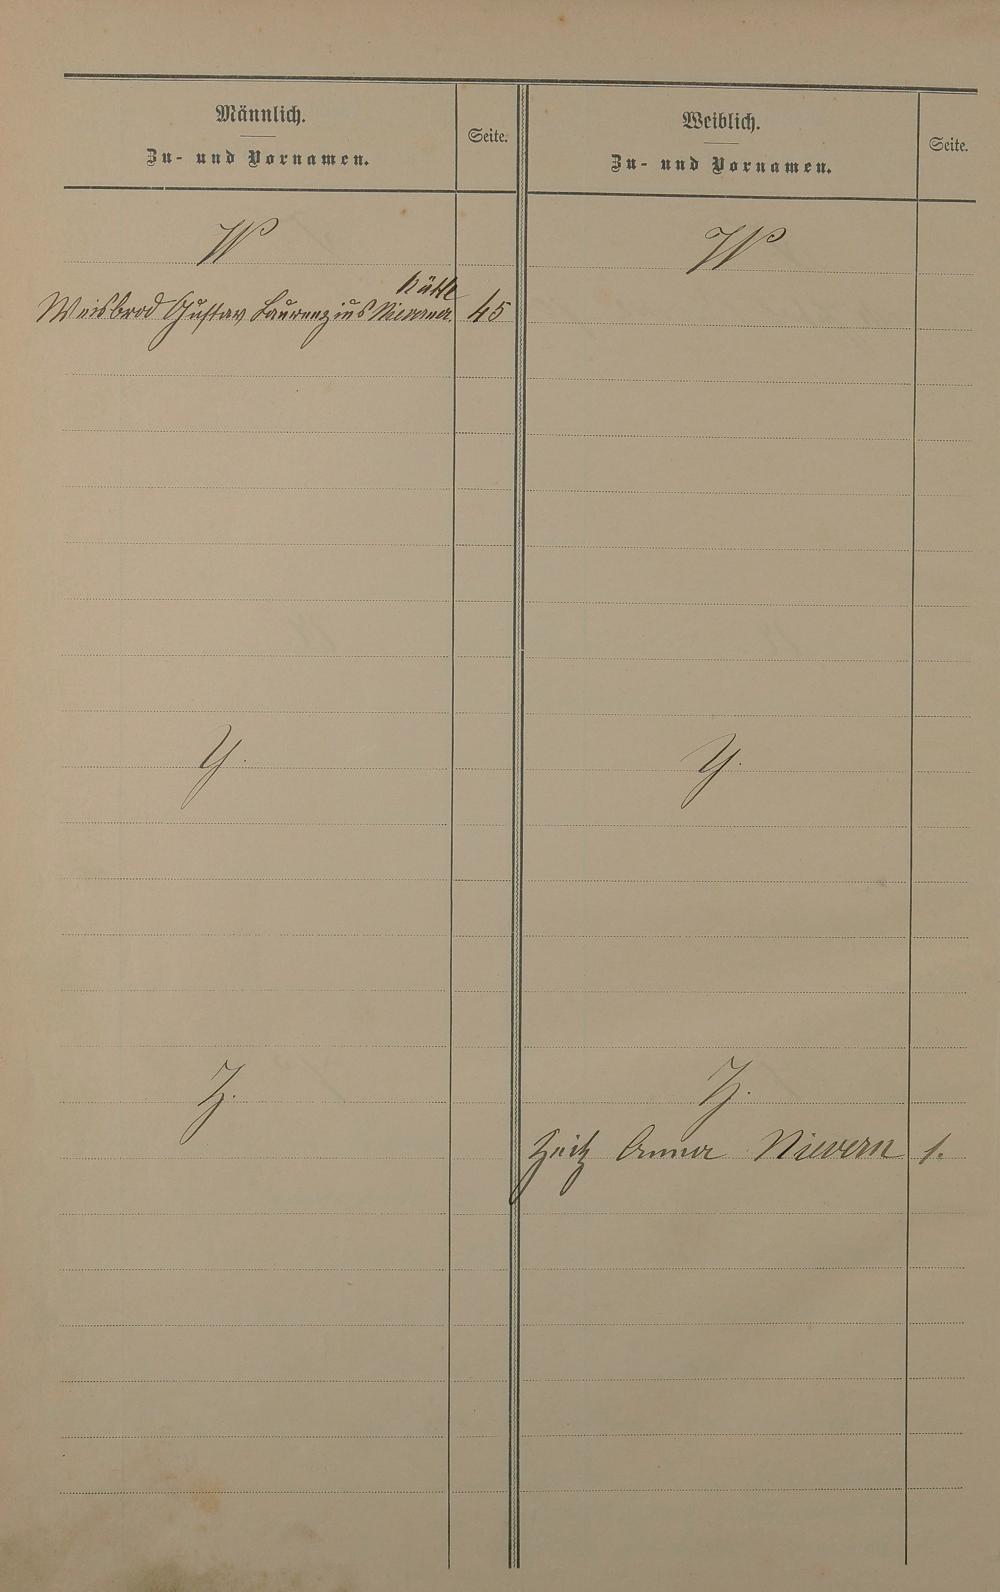 Männlich.
Zu- und Vornamen.
Seite.
W
Hütte
Weisbrod Gustav Laurenzius 45
Y.
Z.
Weiblich.
Zu- und Vornamen.
Seite.
W
Y.
Z.
Zeitz Anna Nievern 1.